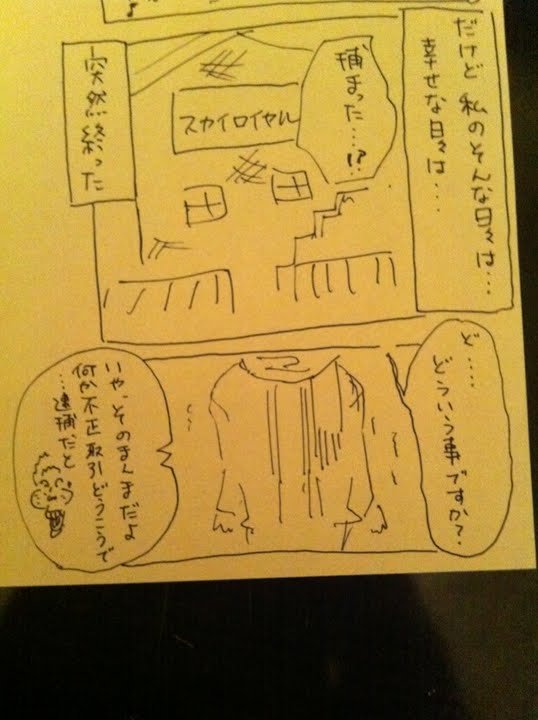 だけど 私のそんな日々は…
幸せな日々は…
捕まった…!?
スカイロイヤル
突然終った
ど……
どういう事ですか?
いや、そのまんまだよ
何か不正取引どうこうで
…逮捕だと